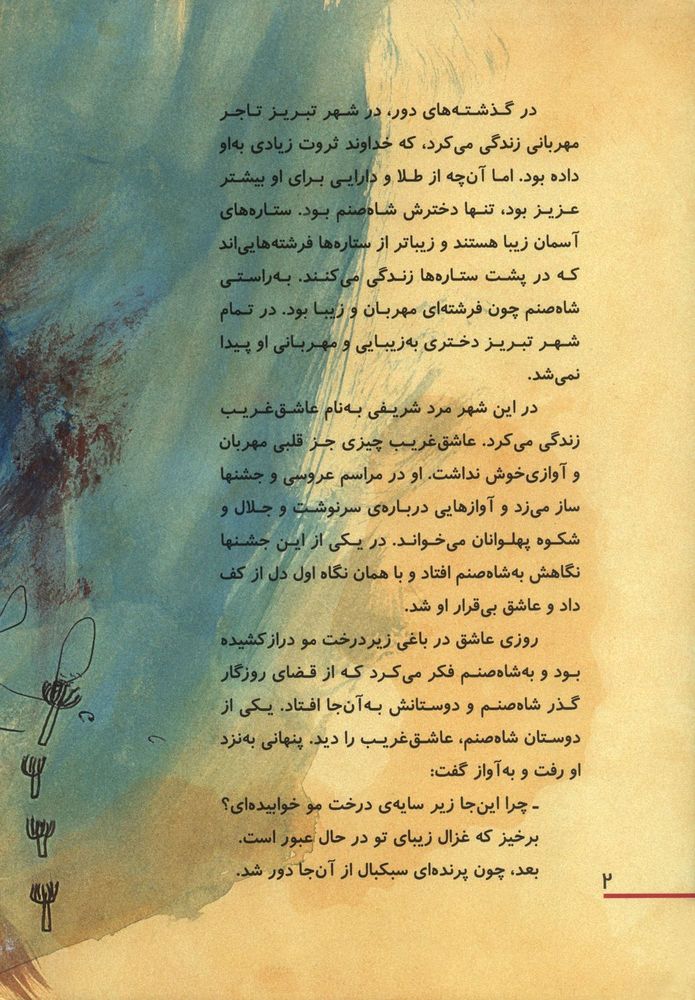 در گذشته‌های دور، در شهر تبریز تاجر
مهربانی زندگی می‌کرد، که خداوند ثروت زیادی به‌او
داده بود. اما آن‌چه از طلا و دارایی برای او بیشتر
عزیز بود، تنها دخترش شاه‌صنم بود. ستاره‌های
آسمان زیبا هستند و زیباتر از ستاره‌ها فرشته‌هایی‌اند
که در پشت ستاره‌ها زندگی می‌کنند. به‌راستی
شاه‌صنم چون فرشته‌ای مهربان و زیبا بود. در تمام
شهر تبریز دختری به‌زیبایی و مهربانی او پیدا
نمی‌شد.
در این شهر مرد شریفی به‌نام عاشق‌غریب
زندگی می‌کرد. عاشق‌غریب چیزی جز قلبی مهربان
و آوازی‌خوش نداشت. او در مراسم عروسی و جشنها
ساز می‌زد و آوازهایی درباره‌ی سرنوشت و جلال و
شکوه پهلوانان می‌خواند. در یکی از این جشنها
نگاهش به‌شاه‌صنم افتاد و با همان نگاه اول دل از کف
داد و عاشق بی‌قرار او شد.
روزی عاشق در باغی زیردرخت مو درازکشیده
بود و به‌شاه‌صنم فکر می‌کرد که از قضای روزگار
گذر شاه‌صنم و دوستانش به‌آن‌جا افتاد. یکی از
دوستان شاه‌صنم، عاشق‌غریب را دید. پنهانی به‌نزد
او رفت و به‌آواز گفت:
ـ چرا این‌جا زیر سایه‌ی درخت مو خوابیده‌ای؟
برخیز که غزال زیبای تو در حال عبور است.
بعد، چون پرنده‌ای سبکبال از آن‌جا دور شد.
۲